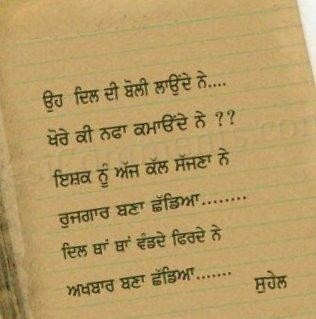 ਉਹ ਦਿਲ ਦੀ ਬੋਲੀ ਲਾਉਂਦੇ ਨੇ....
ਖੋਰੇ ਕੀ ਨਫਾ ਕਮਾਉਂਦੇ ਨੇ ??
ਇਸ਼ਕ ਨੂੰ ਅੱਜ ਕੱਲ ਸੱਜਣਾ ਨੇ
ਰੁਜਗਾਰ ਬਣਾ ਛੱਡਿਆ........
ਦਿਲ ਥਾਂ ਥਾਂ ਵੰਡਦੇ ਫਿਰਦੇ ਨੇ
ਅਖਬਾਰ ਬਣਾ ਛੱਡਿਆ....... ਸੁਹੇਲ